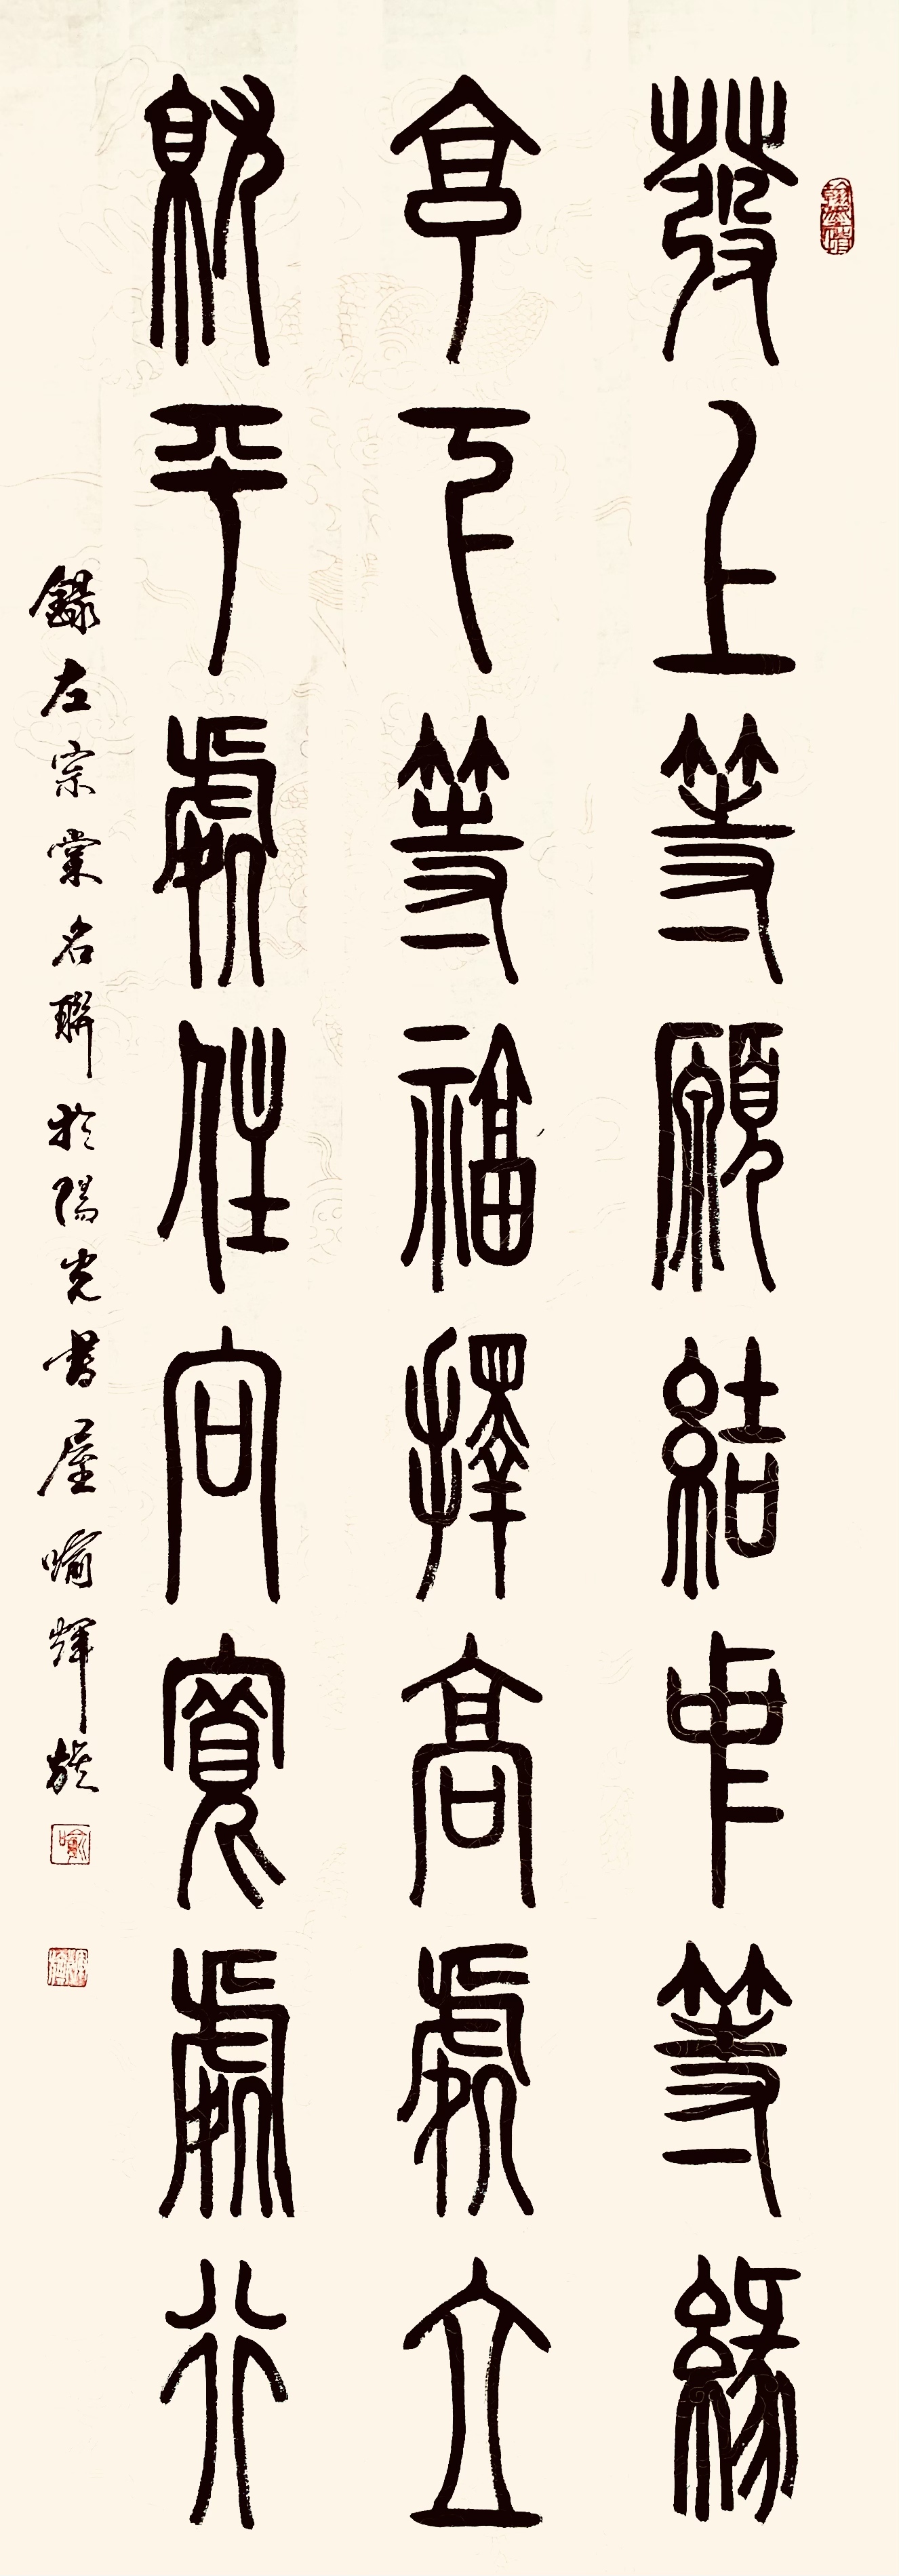 發上等願結中等緣
享下等福擇高處立
就平處住向寬處行
錄左宗棠名聯於陽光書屋喻輝旋
喻